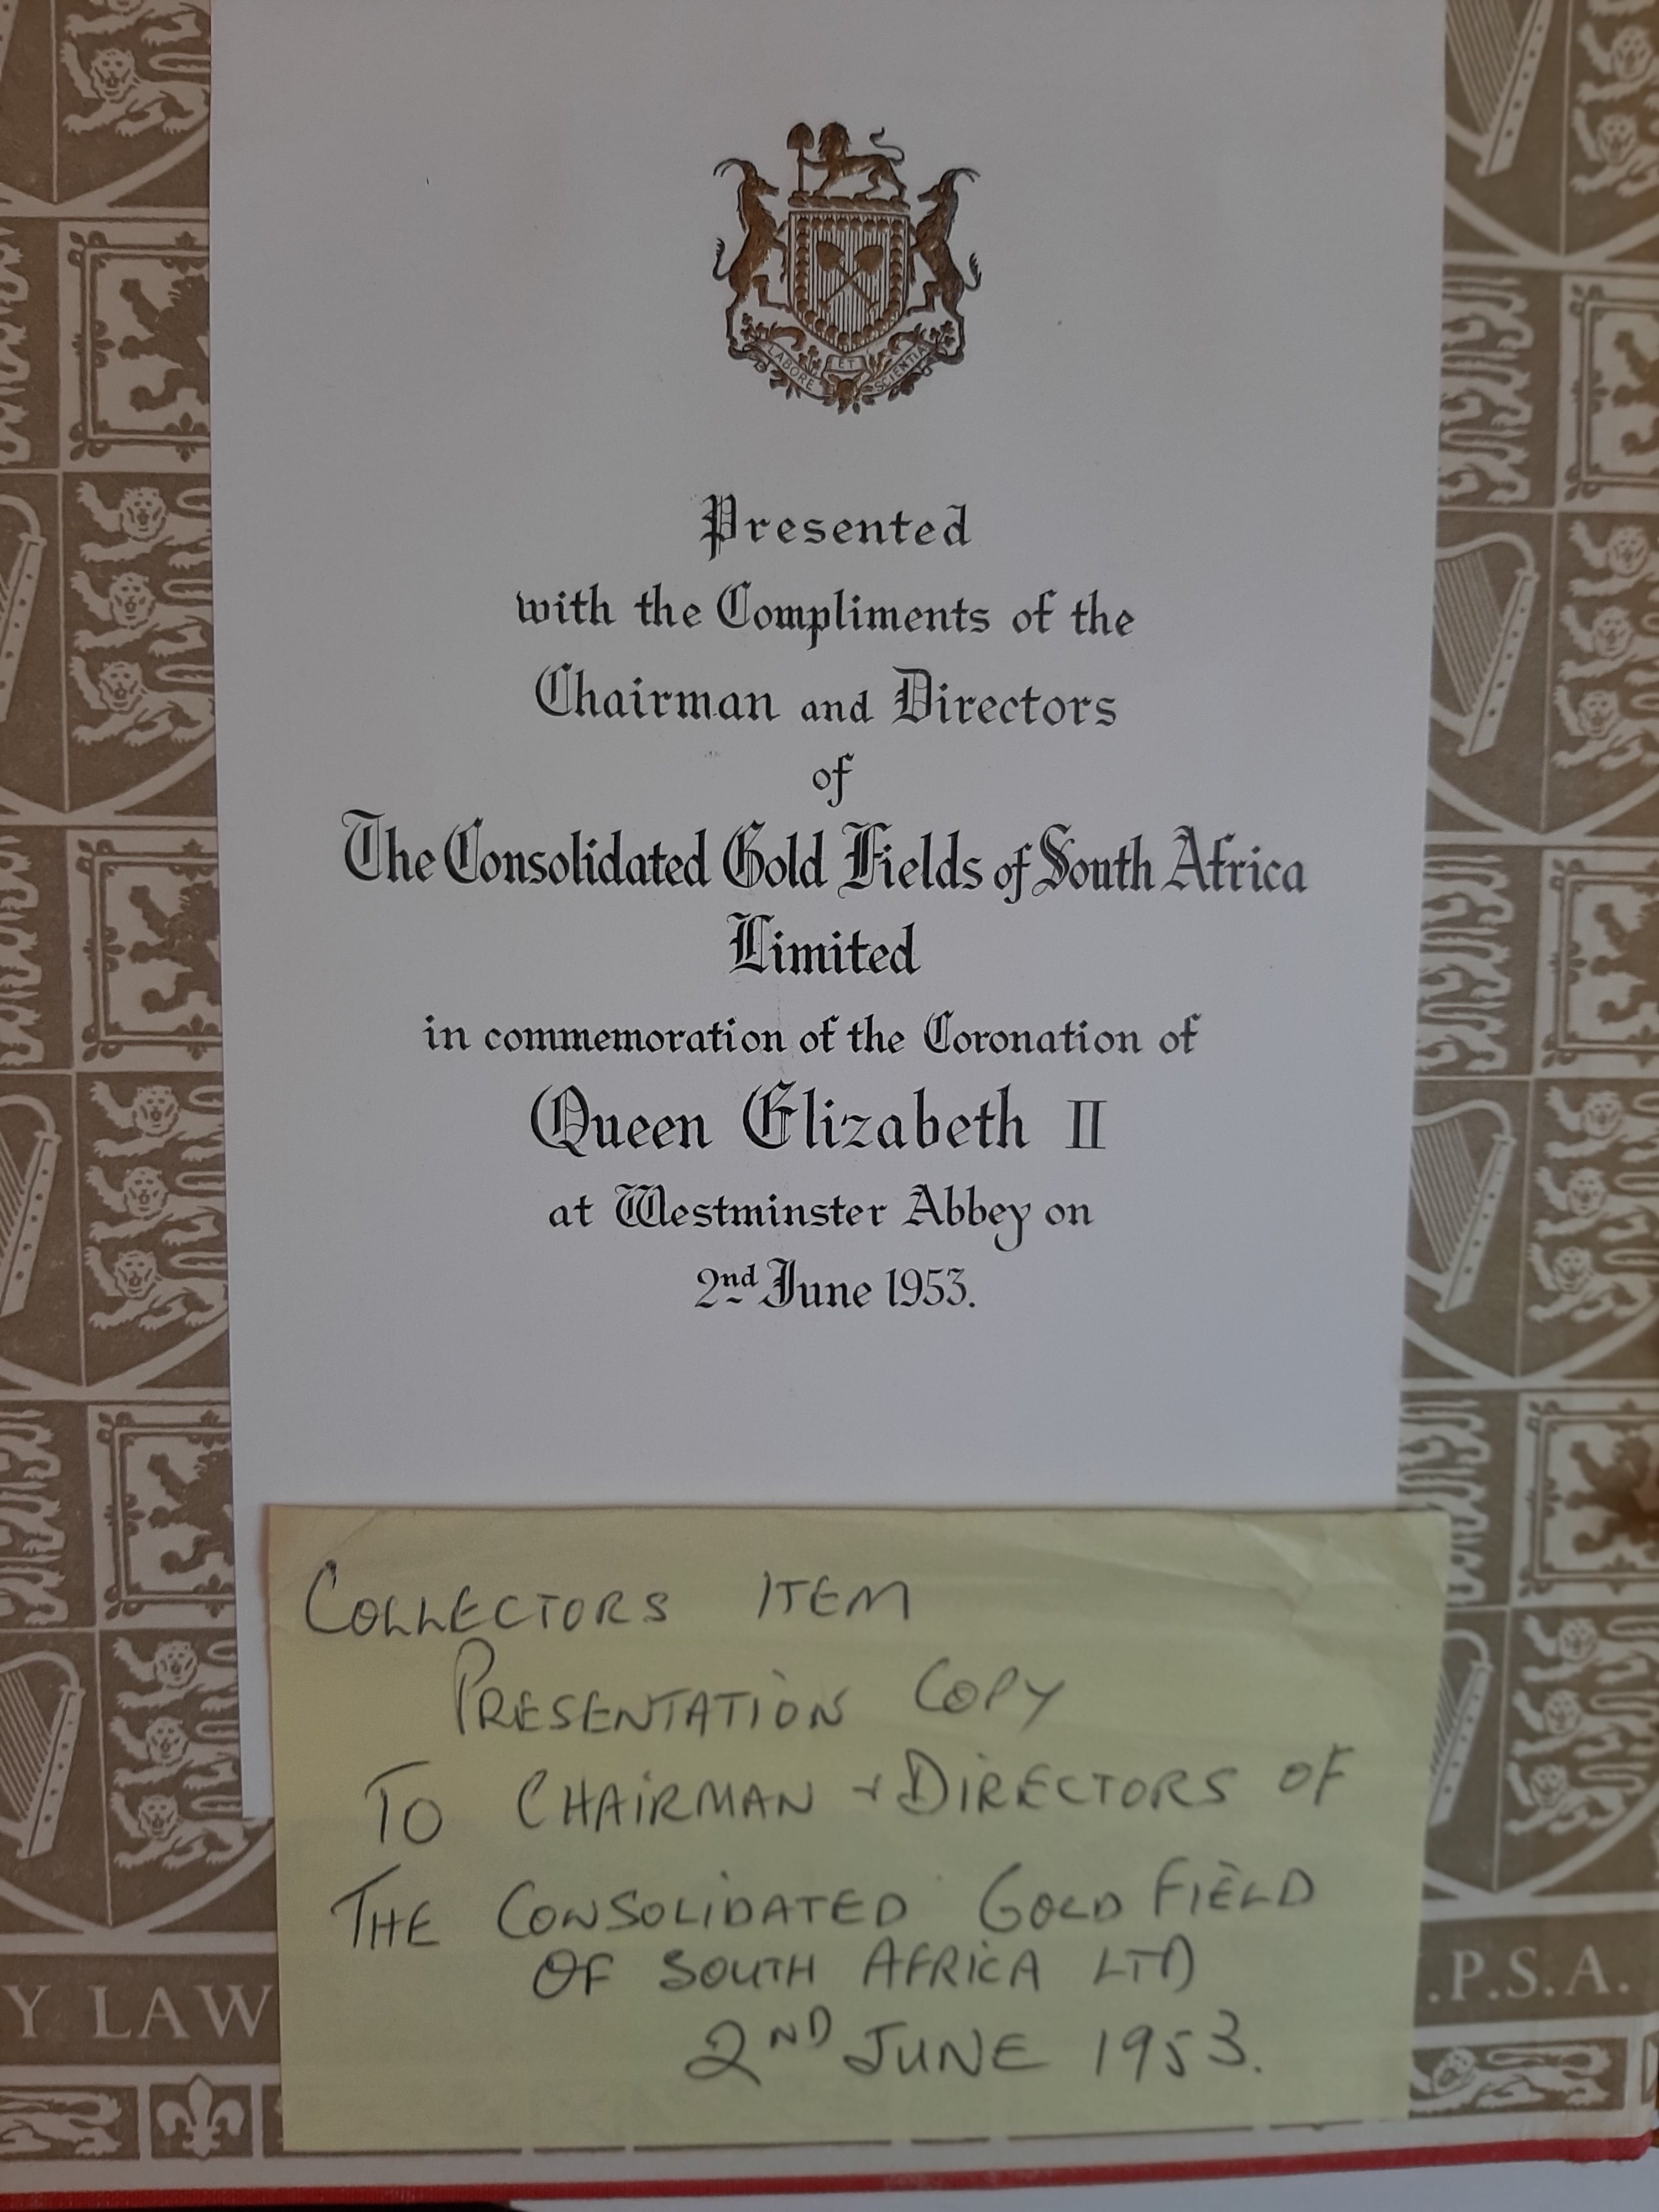 LABORE ET SCIENTIA
Presented
with the Compliments of the
Chairman and Directors
of
The Consolidated Gold Fields of South Africa
Limited
in commemoration of the Coronation of
Queen Elizabeth II
at Westminster Abbey on
2nd June 1953.
COLLECTORS ITEM
PRESENTATION COPY
TO CHAIRMAN + DIRECTORS OF
THE CONSOLIDATED GOLD FIELD
OF SOUTH AFRICA LTD
2ND JUNE 1953.
Y LAW .P.S.A.